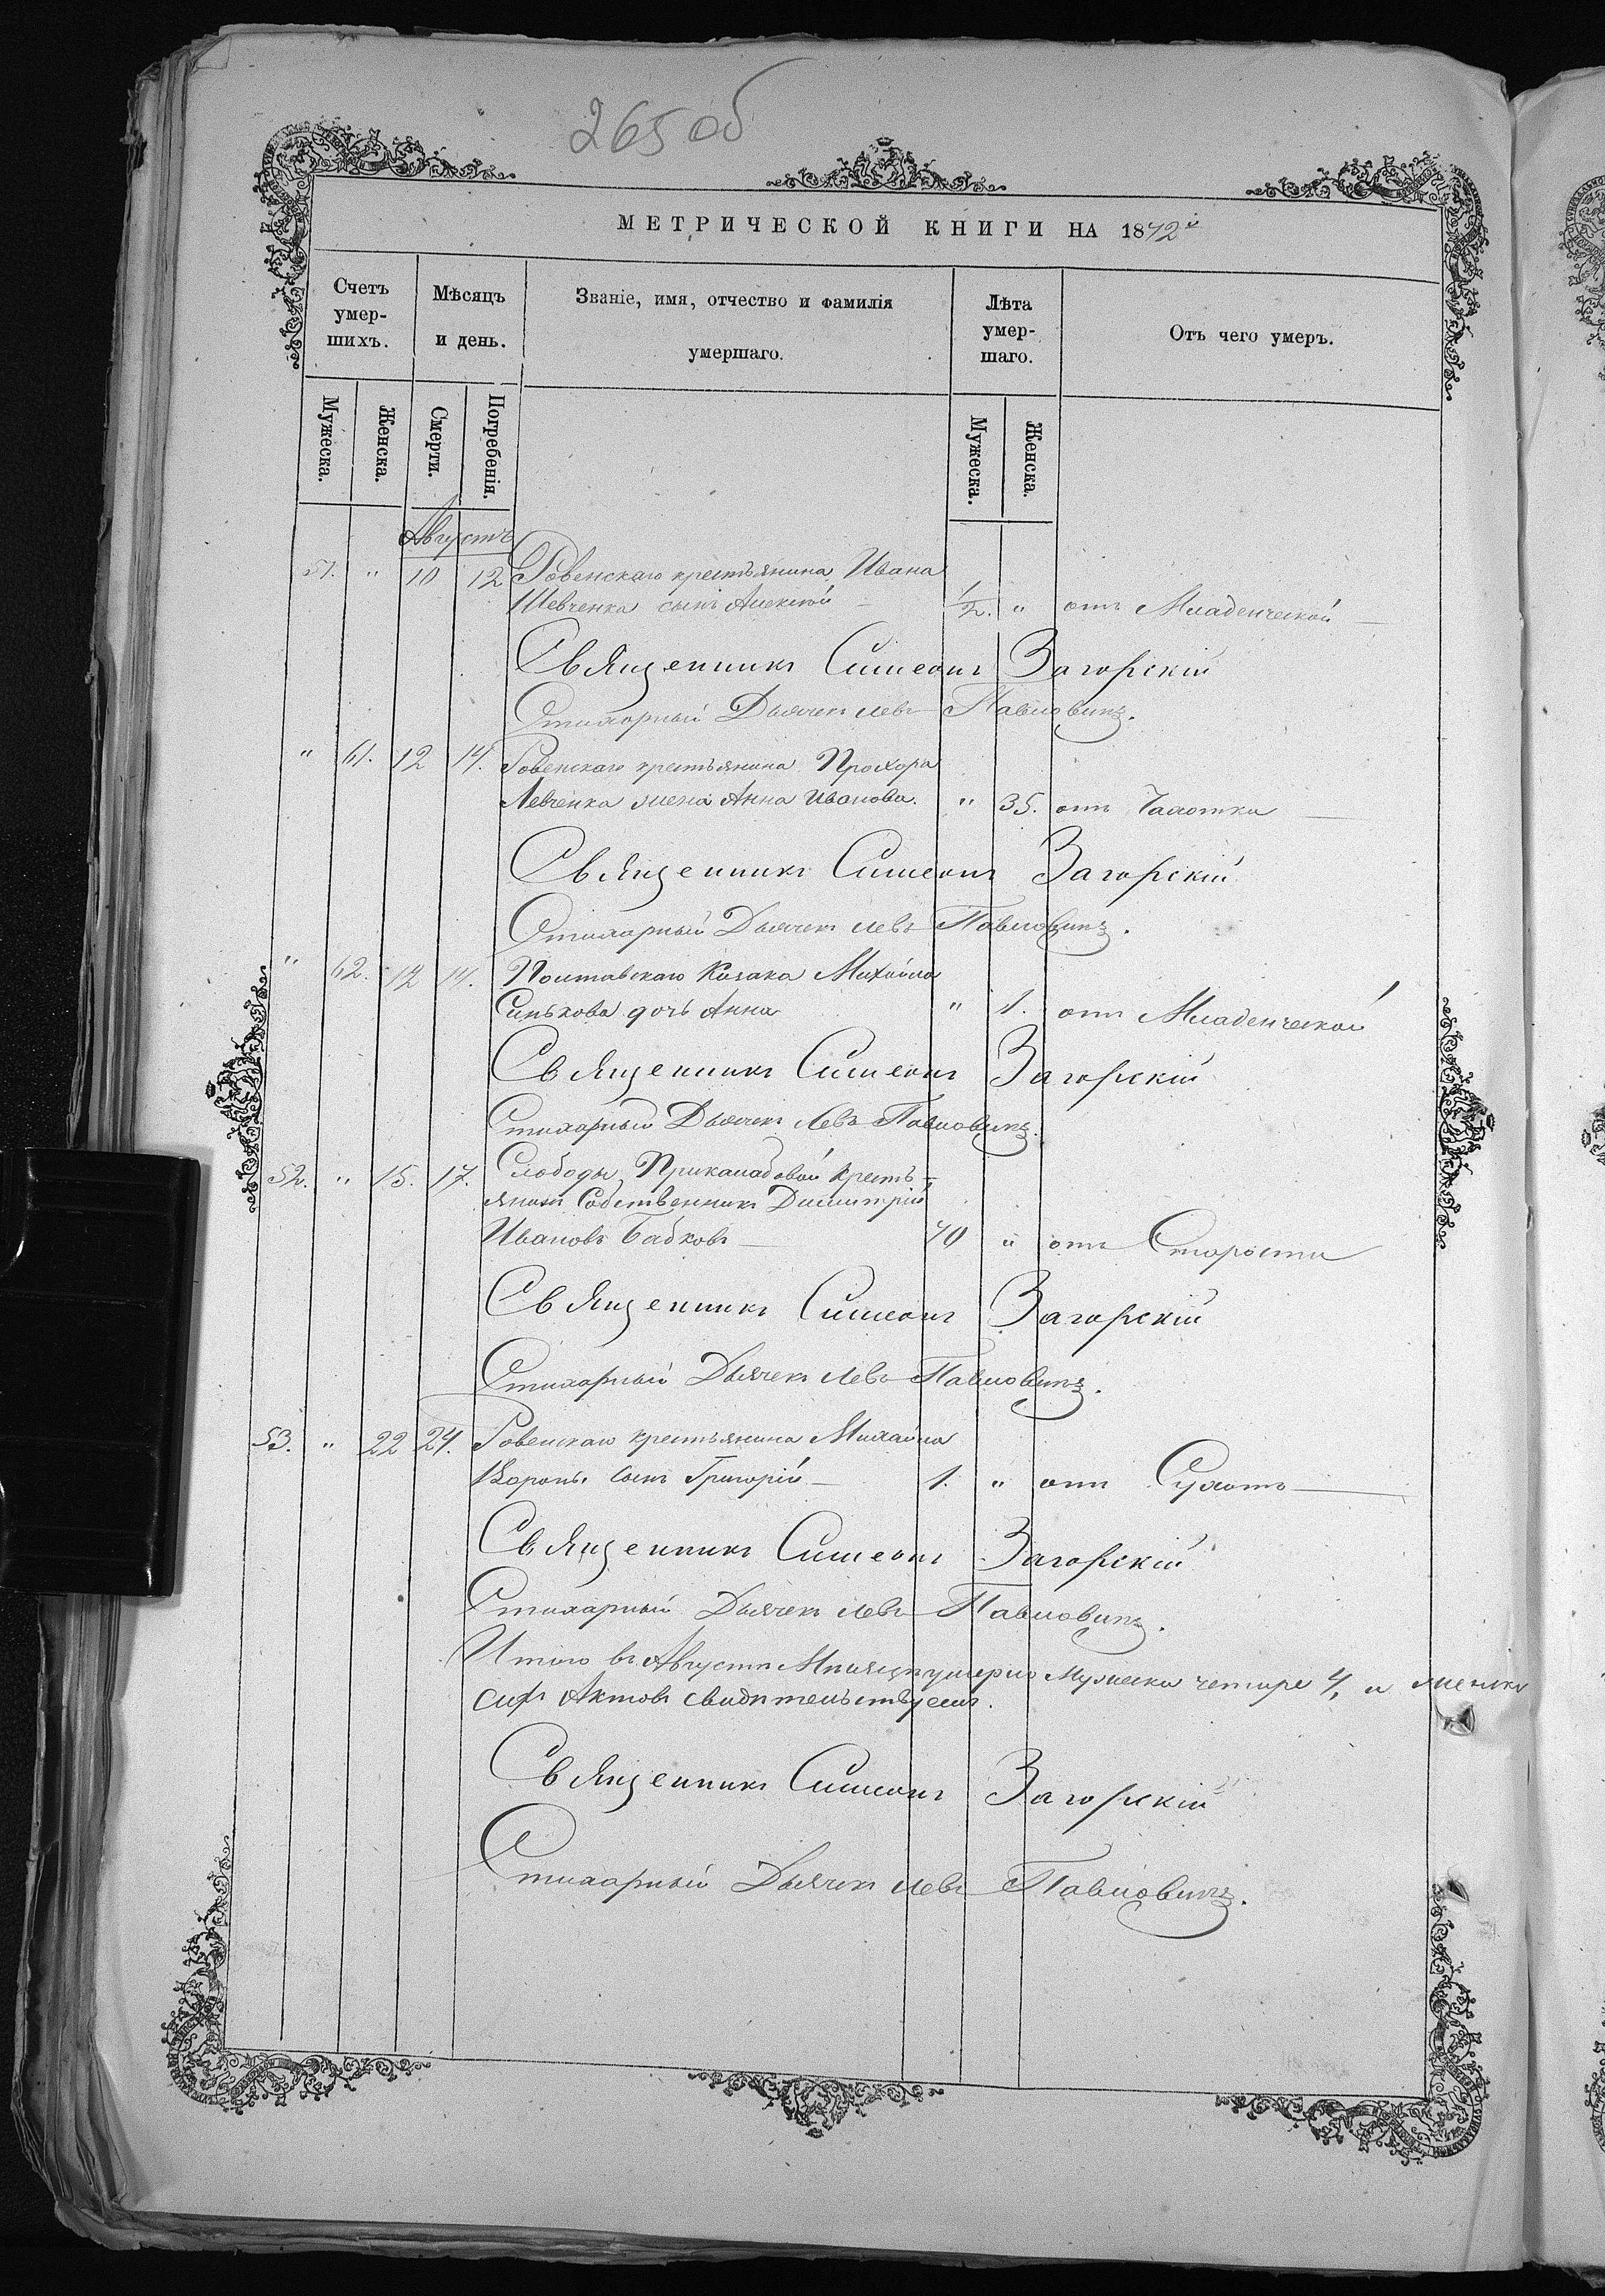 265 об
МЕТРИЧЕСКОЙ КНИГИ НА 1872й
Счетъ умер-шихъ.
Мѣсяцъ и день.
Званіе, имя, отчество и фамилія умершаго.
Лѣта умер-шаго.
Отъ чего умеръ.
Мужеска. Женска. Смерти. Погребенія. Мужеска. Женска.
Августъ
51. " 10 12 Ровенскаго крестьянина Ивана
Шевченка сынъ Алексѣй 1/2. " отъ Младенческой
Священникъ Симеонъ Загорскій
Стихарный Дьячекъ Левъ Павловичъ.
" 61. 12 14. Ровенскаго крестьянина Прохора
Левченка жена Анна Иванова. " 35. отъ Чахотки
Священникъ Симеонъ Загорскій
Стихарный Дьячекъ Левъ Павловичъ.
" 62. 12 14. Полтавскаго Казака Михайла
Синькова дочь Анна " 1. отъ Младенческой
Священникъ Симеонъ Загорскій
Стихарный Дьячекъ Левъ Павловичъ.
52. " 15. 17. Слободы Крестъ-
янинъ Собственникъ Димитрій
Ивановъ Бабковъ 70 " отъ Старости
Священникъ Симеонъ Загорскій
Стихарный Дьячекъ Левъ Павловичъ.
53. " 22 24. Ровенскаго крестьянина Михайла
Коропъ сынъ Григорій 1. " отъ Сухотъ
Священникъ Симеонъ Загорскій
Стихарный Дьячекъ Левъ Павловичъ.
Итого въ Августѣ Мѣсяцѣ умерло Мужеска четыре 4, и женска
сихъ Актовъ свидѣтельствуемъ.
Священникъ Симеонъ Загорскій
Стихарный Дьячекъ Левъ Павловичъ.